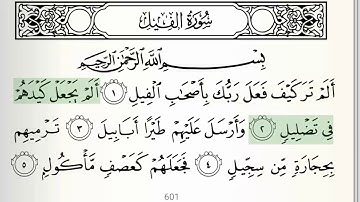 سُورَةُ الفِيلِ
بِسْمِ اللَّهِ الرَّحْمَٰنِ الرَّحِيمِ
أَلَمْ تَرَ كَيْفَ فَعَلَ رَبُّكَ بِأَصْحَابِ الْفِيلِ ١ أَلَمْ يَجْعَلْ كَيْدَهُمْ
فِي تَضْلِيلٍ ٢ وَأَرْسَلَ عَلَيْهِمْ طَيْرًا أَبَابِيلَ ٣ تَرْمِيهِم
بِحِجَارَةٍ مِّن سِجِّيلٍ ٤ فَجَعَلَهُمْ كَعَصْفٍ مَّأْكُولٍ ٥
601